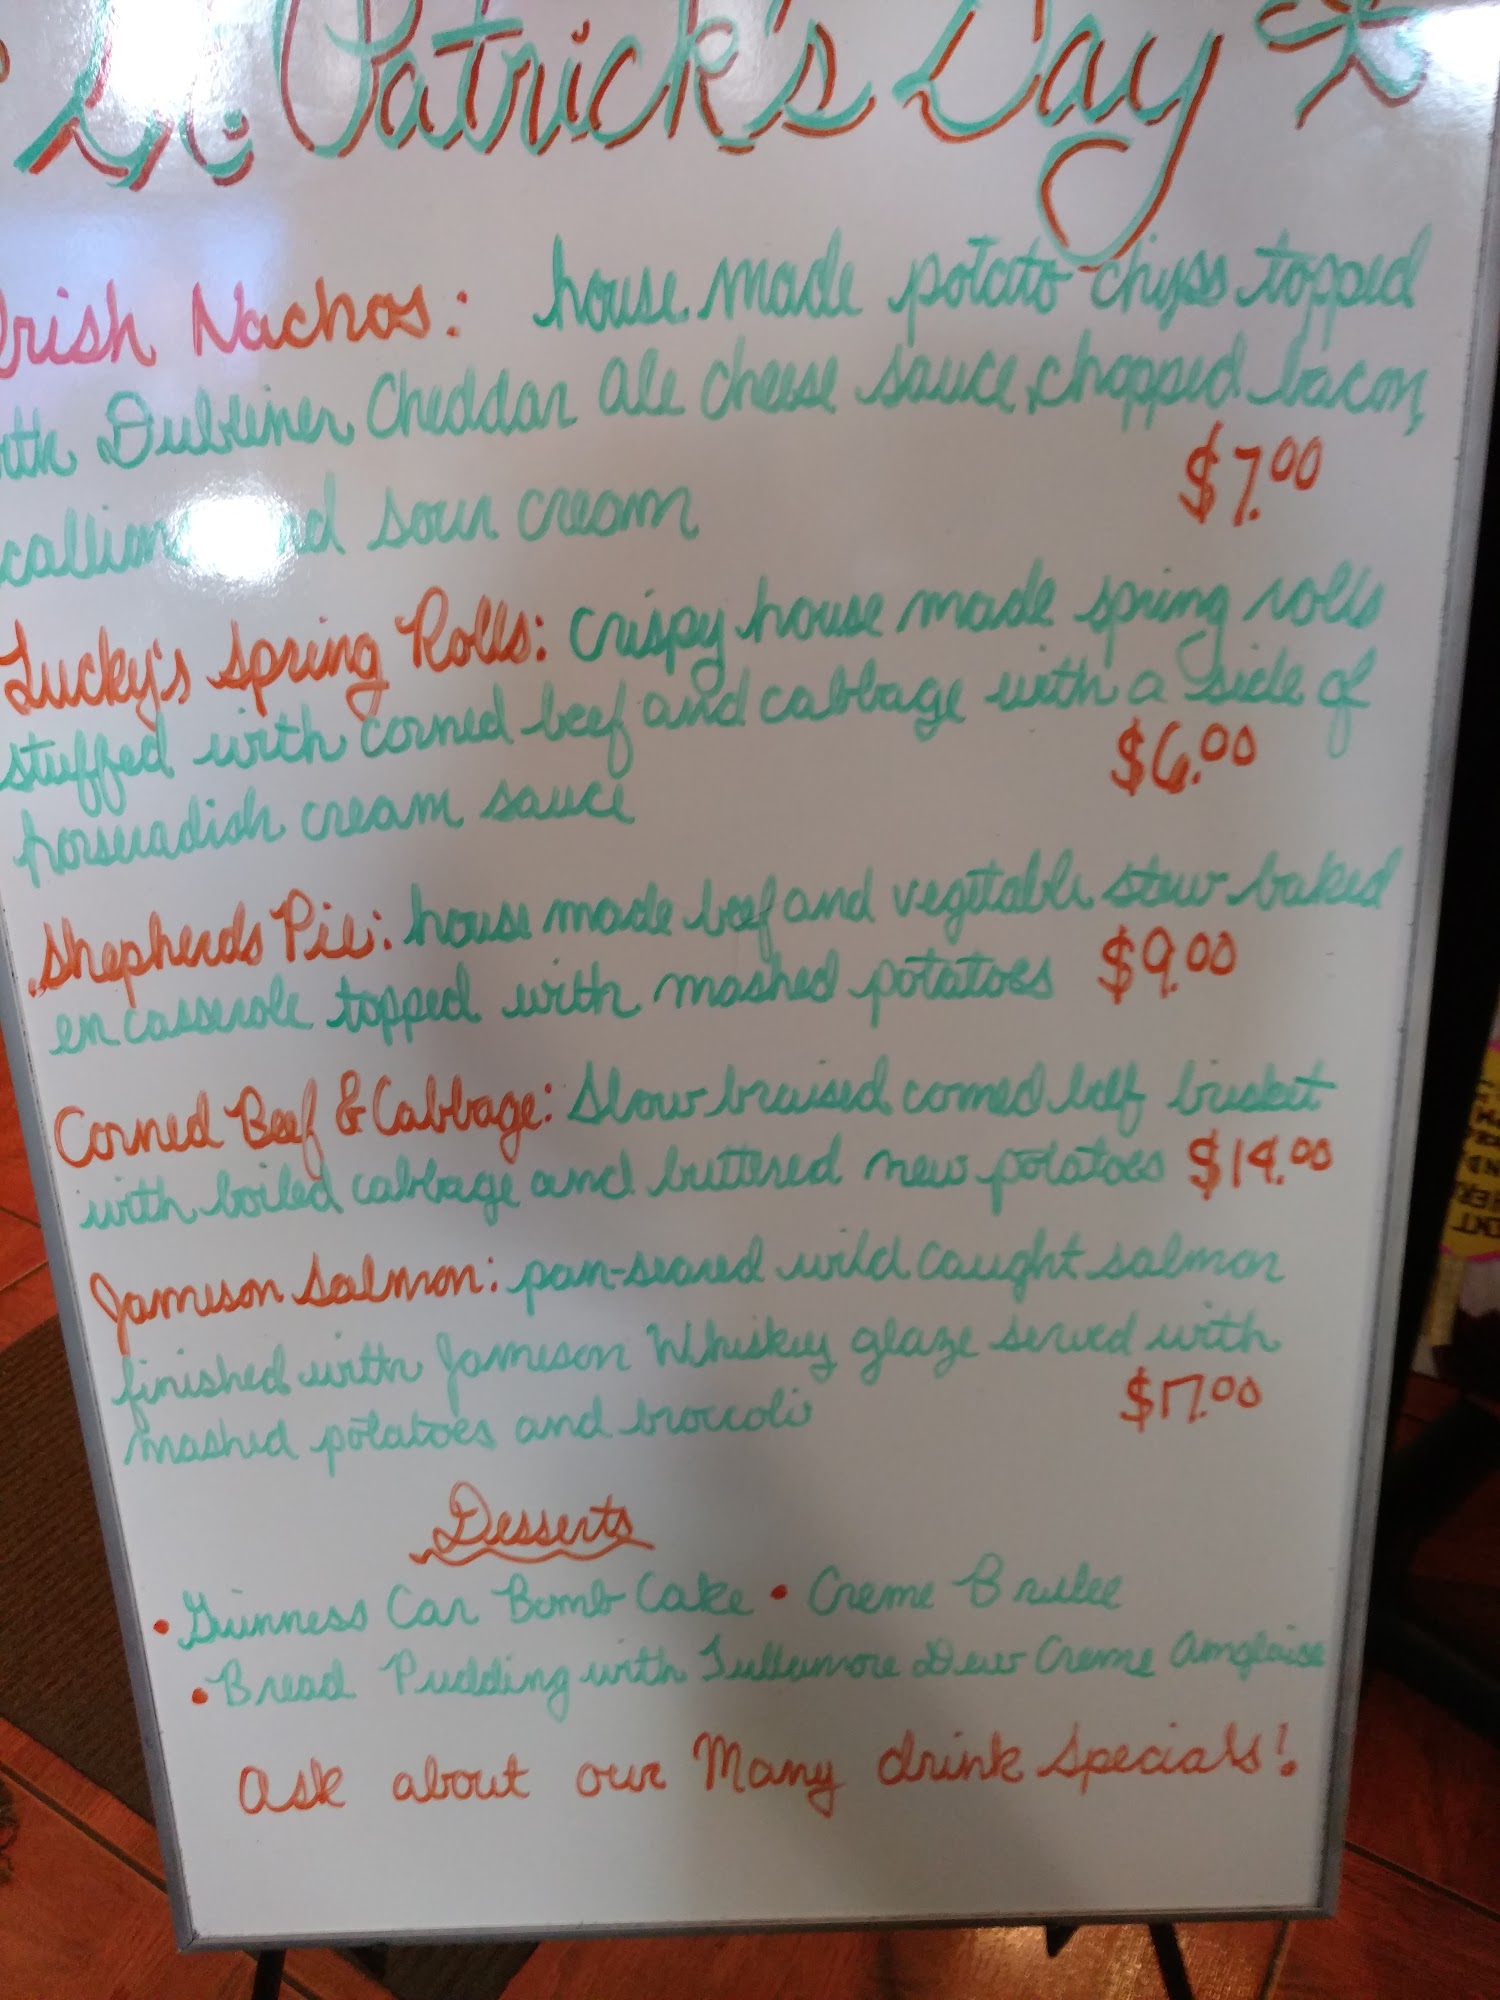 St. Patrick's Day
Irish Nachos: house made potato chips topped
with Dubliner Cheddar Ale cheese sauce, chopped bacon,
scallions and sour cream $7.00
Lucky's Spring Rolls: crispy house made spring rolls
stuffed with corned beef and cabbage with a side of
horseradish cream sauce $6.00
Shepherds Pie: house made beef and vegetable stew baked
en casserole topped with mashed potatoes $9.00
Corned Beef & Cabbage: Slow braised corned beef brisket
with boiled cabbage and buttered new potatoes $14.00
Jameson Salmon: pan-seared wild caught salmon
finished with Jameson Whiskey glaze served with
mashed potatoes and broccoli $17.00
Desserts
• Guinness Car Bomb Cake • Creme Brulee
• Bread Pudding with Tullamore Dew Creme Anglaise
Ask about our Many drink Specials!